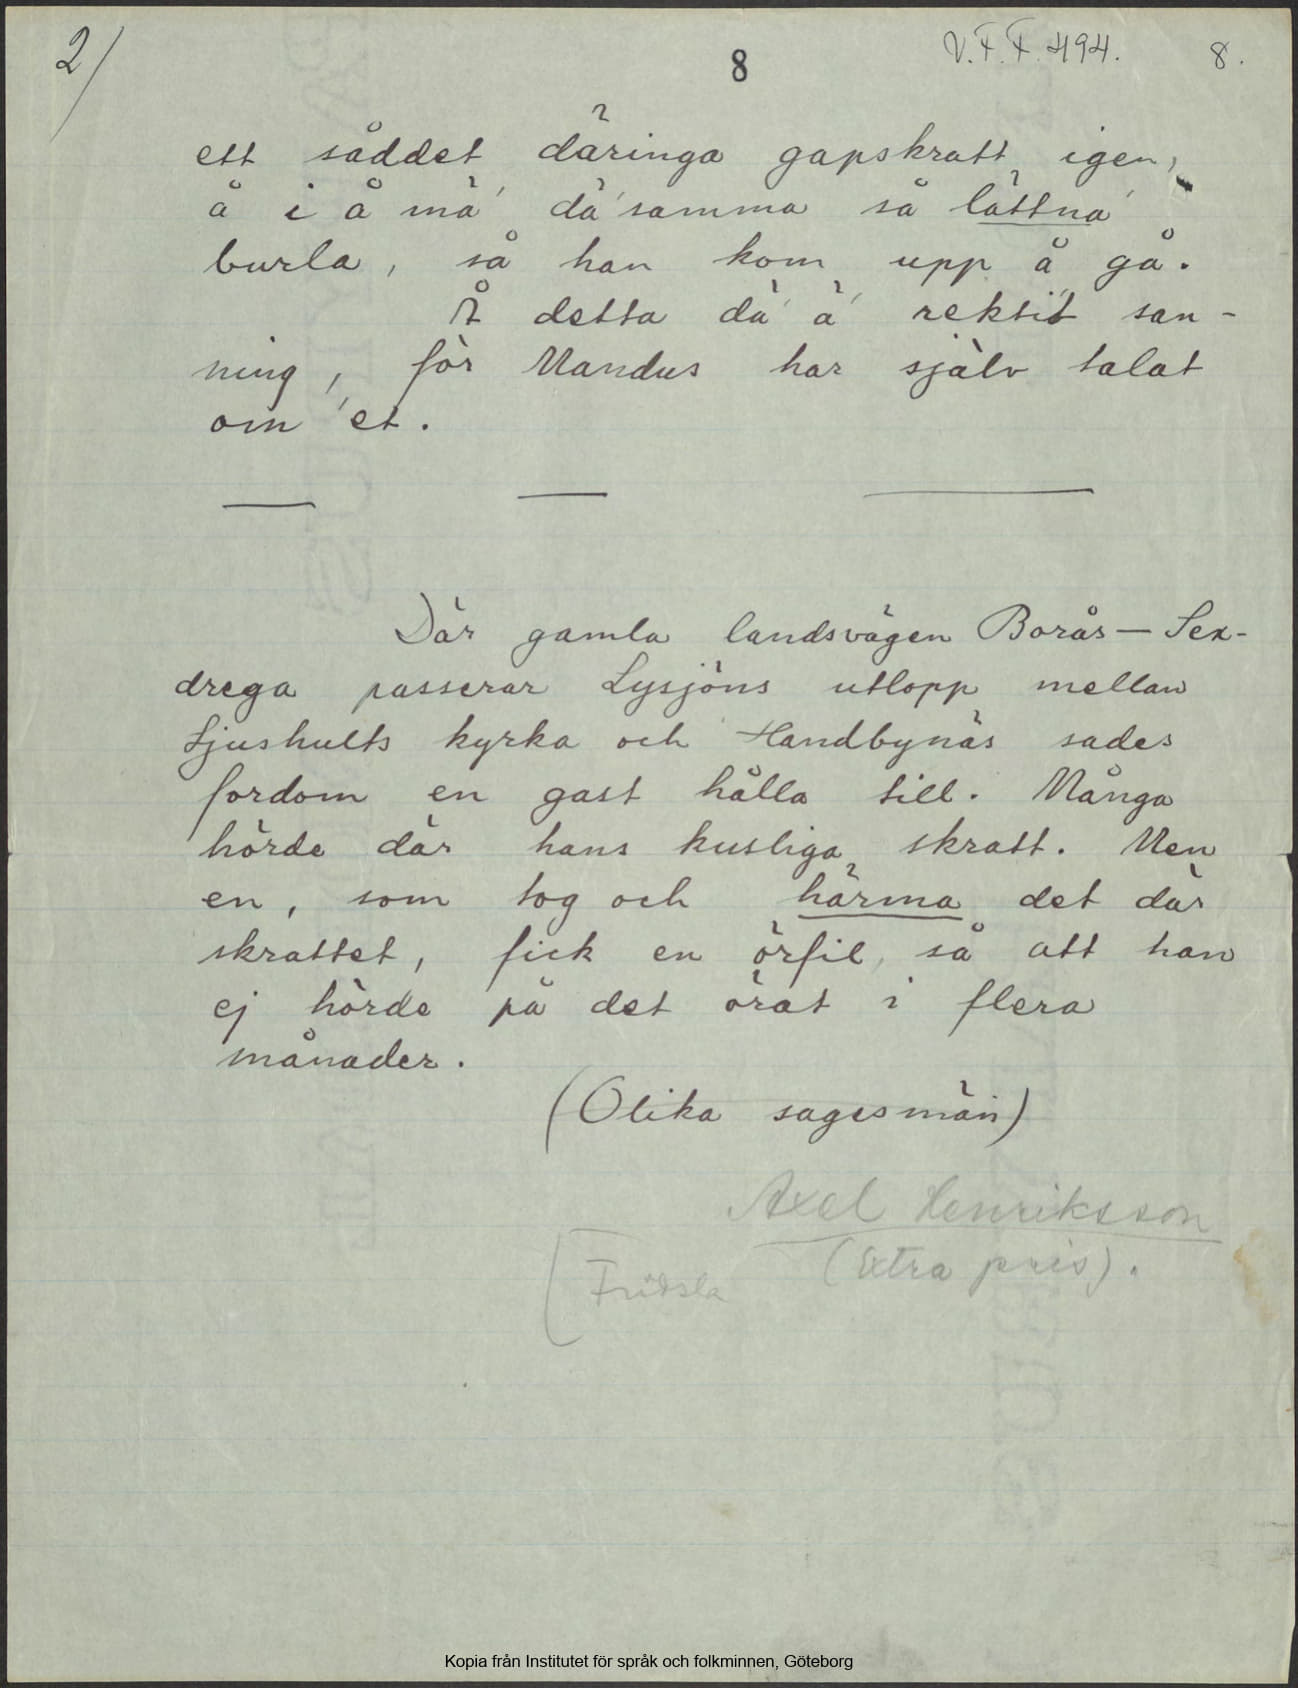 2/
8
V.F.F. 494. 8.
ett såddet däringa gapskratt igen,
å i å mä' dä'samma så lättna'
burla, så han kom upp å gå.
Å detta dä' ä' rekti't san-
ning, för Mandus har själv talat
om 'et.
Där gamla landsvägen Borås — Sex-
drega passerar Lysjöns utlopp mellan
Ljushults kyrka och Handbynäs sades
fordom en gast hålla till. Många
hörde där hans kusliga skratt. Men
en, som tog och härma det där
skrattet, fick en örfil, så att han
ej hörde på det örat i flera
månader.
(Olika sagesmän)
Axel Henriksson
(Extra pris).
Fritsla
Kopia från Institutet för språk och folkminnen, Göteborg